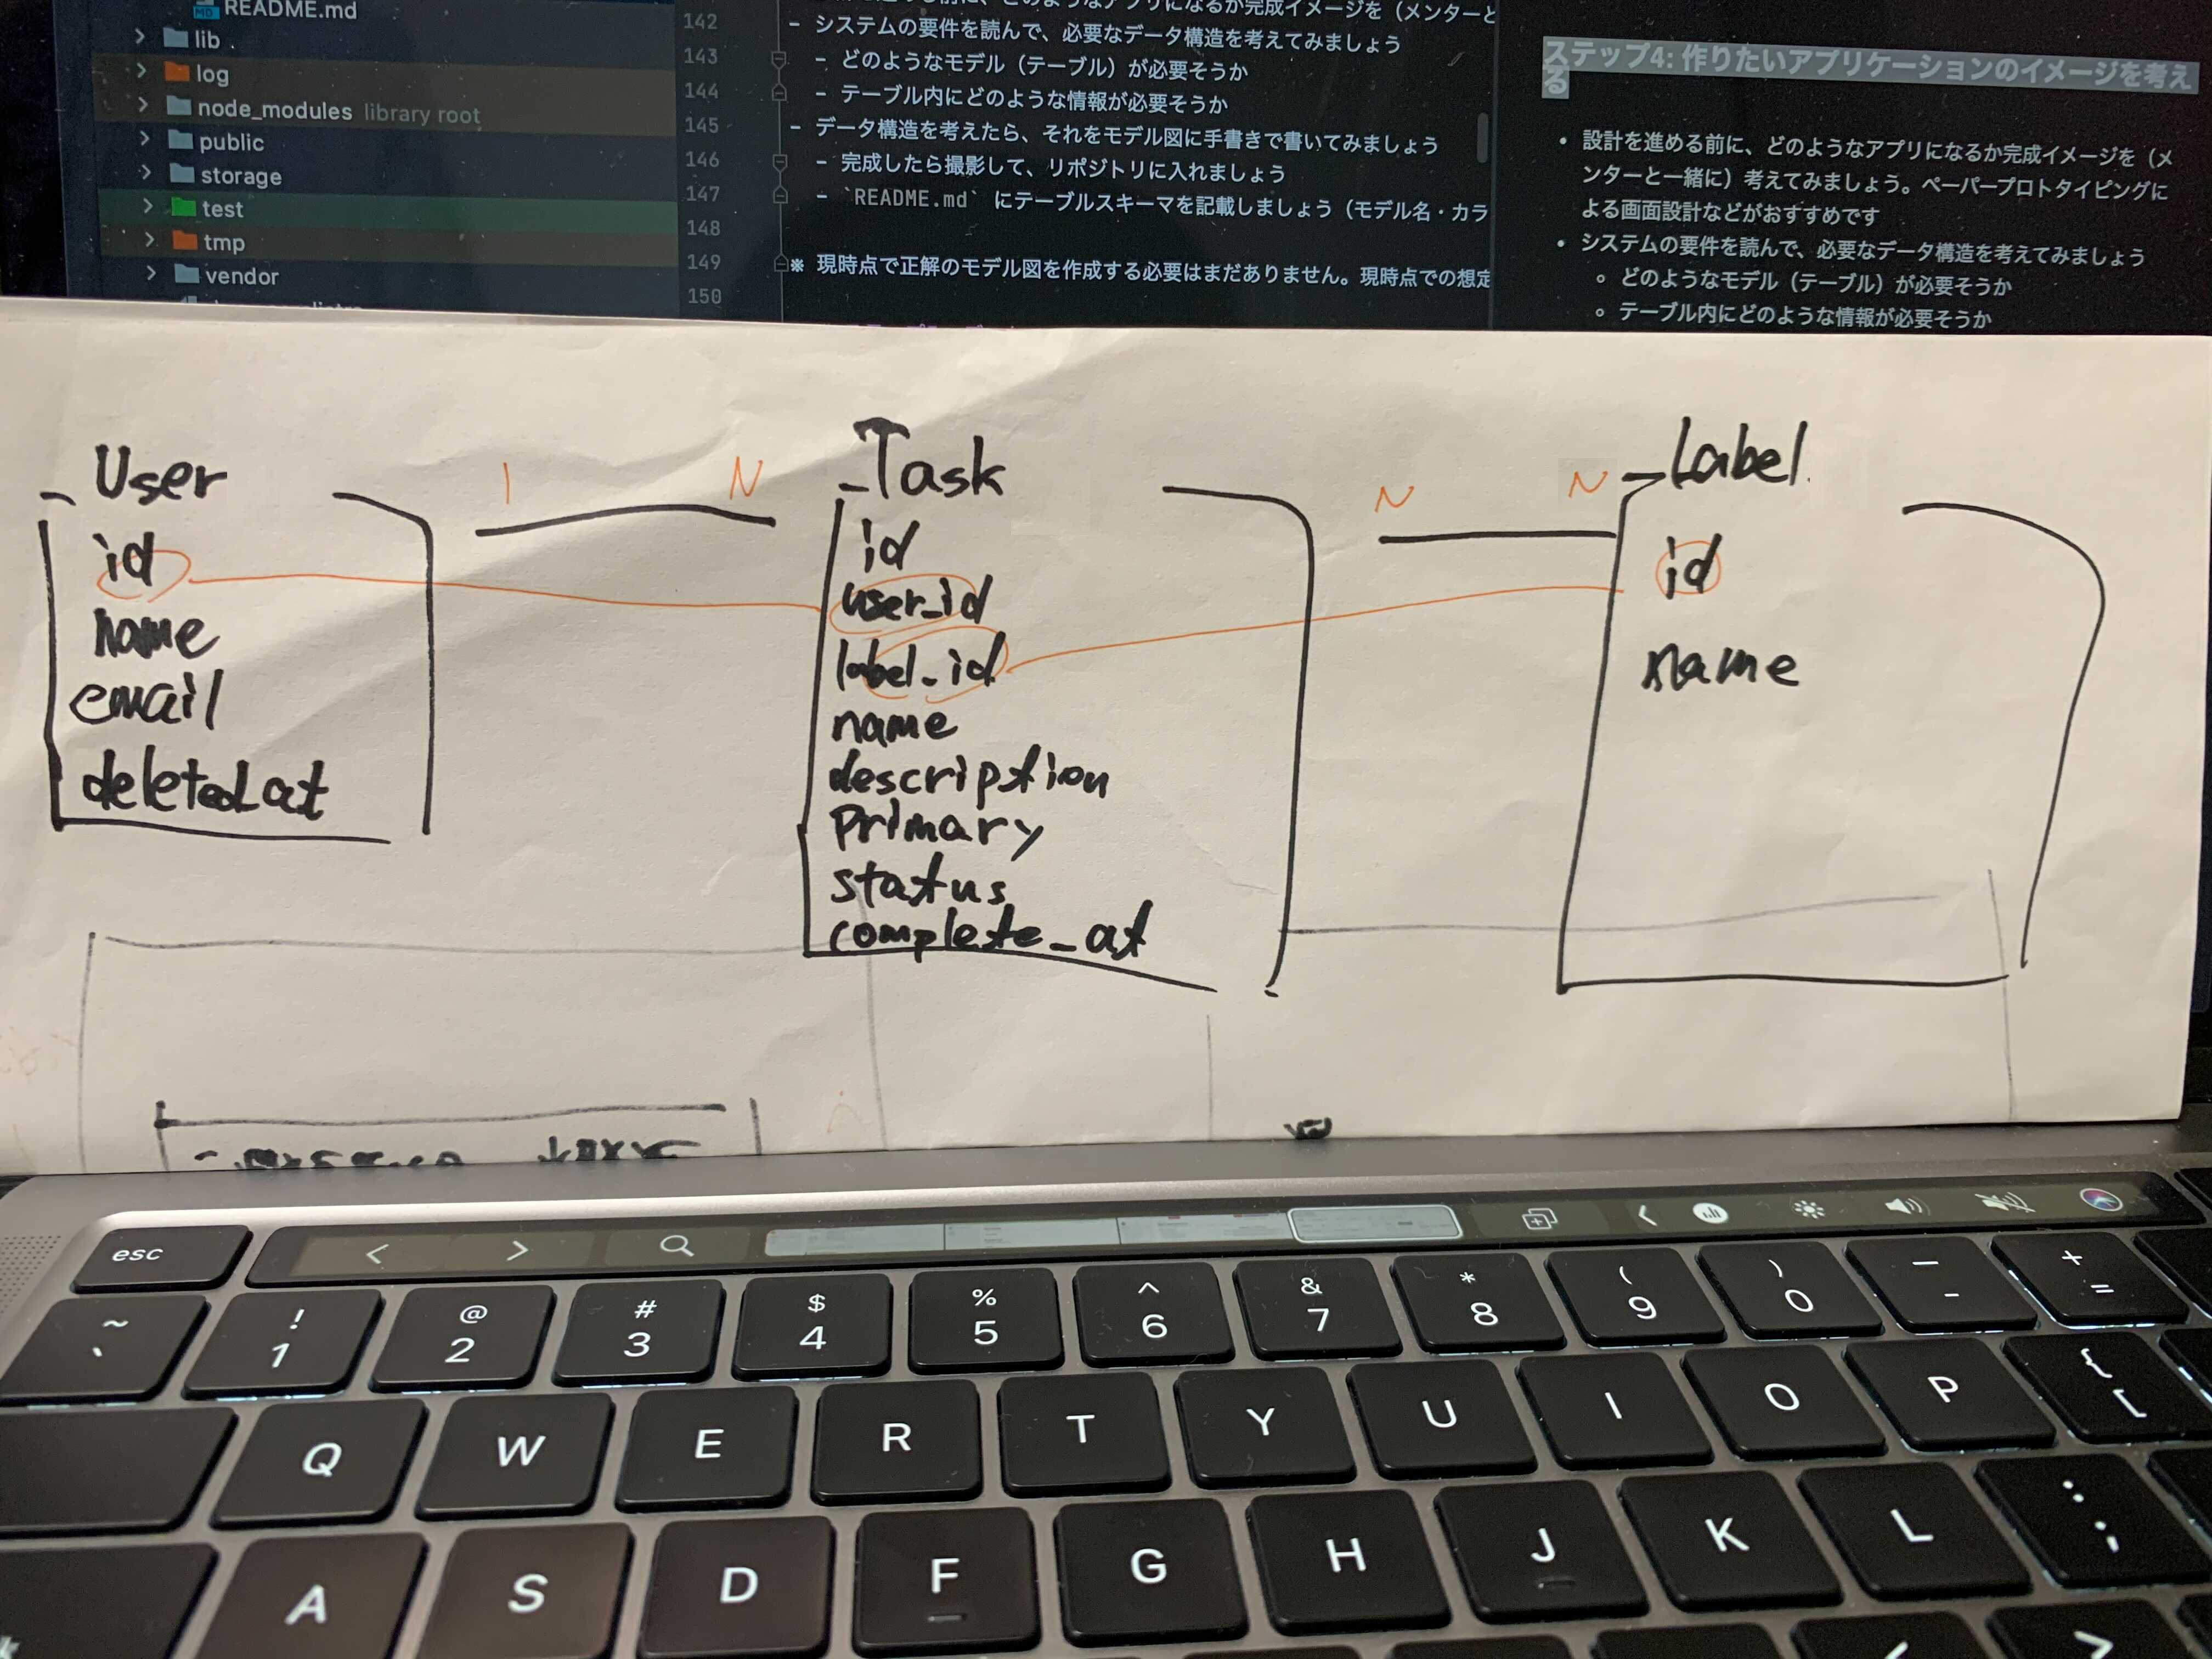 README.md
lib
log
node_modules library root
public
storage
test
tmp
vendor
142
- システムの要件を読んで、必要なデータ構造を考えてみましょう
143
- どのようなモデル（テーブル）が必要そうか
144
- テーブル内にどのような情報が必要そうか
145
- データ構造を考えたら、それをモデル図に手書きで書いてみましょう
146
- 完成したら撮影して、リポジトリに入れましょう
147
- `README.md` にテーブルスキーマを記載しましょう（モデル名・カラ
148
149
※ 現時点で正解のモデル図を作成する必要はまだありません。現時点での想定
150
ステップ4: 作りたいアプリケーションのイメージを考え
る
• 設計を進める前に、どのようなアプリになるか完成イメージを（メ
ンターと一緒に）考えてみましょう。ペーパープロトタイピングに
よる画面設計などがおすすめです
• システムの要件を読んで、必要なデータ構造を考えてみましょう
○ どのようなモデル（テーブル）が必要そうか
○ テーブル内にどのような情報が必要そうか
User
id
name
email
deleted_at
1 N
Task
id
user_id
label_id
name
description
primary
status
complete_at
N N
Label
id
name
esc
~ ` ! 1 @ 2 # 3 $ 4 % 5 ^ 6 & 7 * 8 ( 9 ) 0 — - + =
Q W E R T Y U I O P { [
A S D F G H J K L : ;
< >